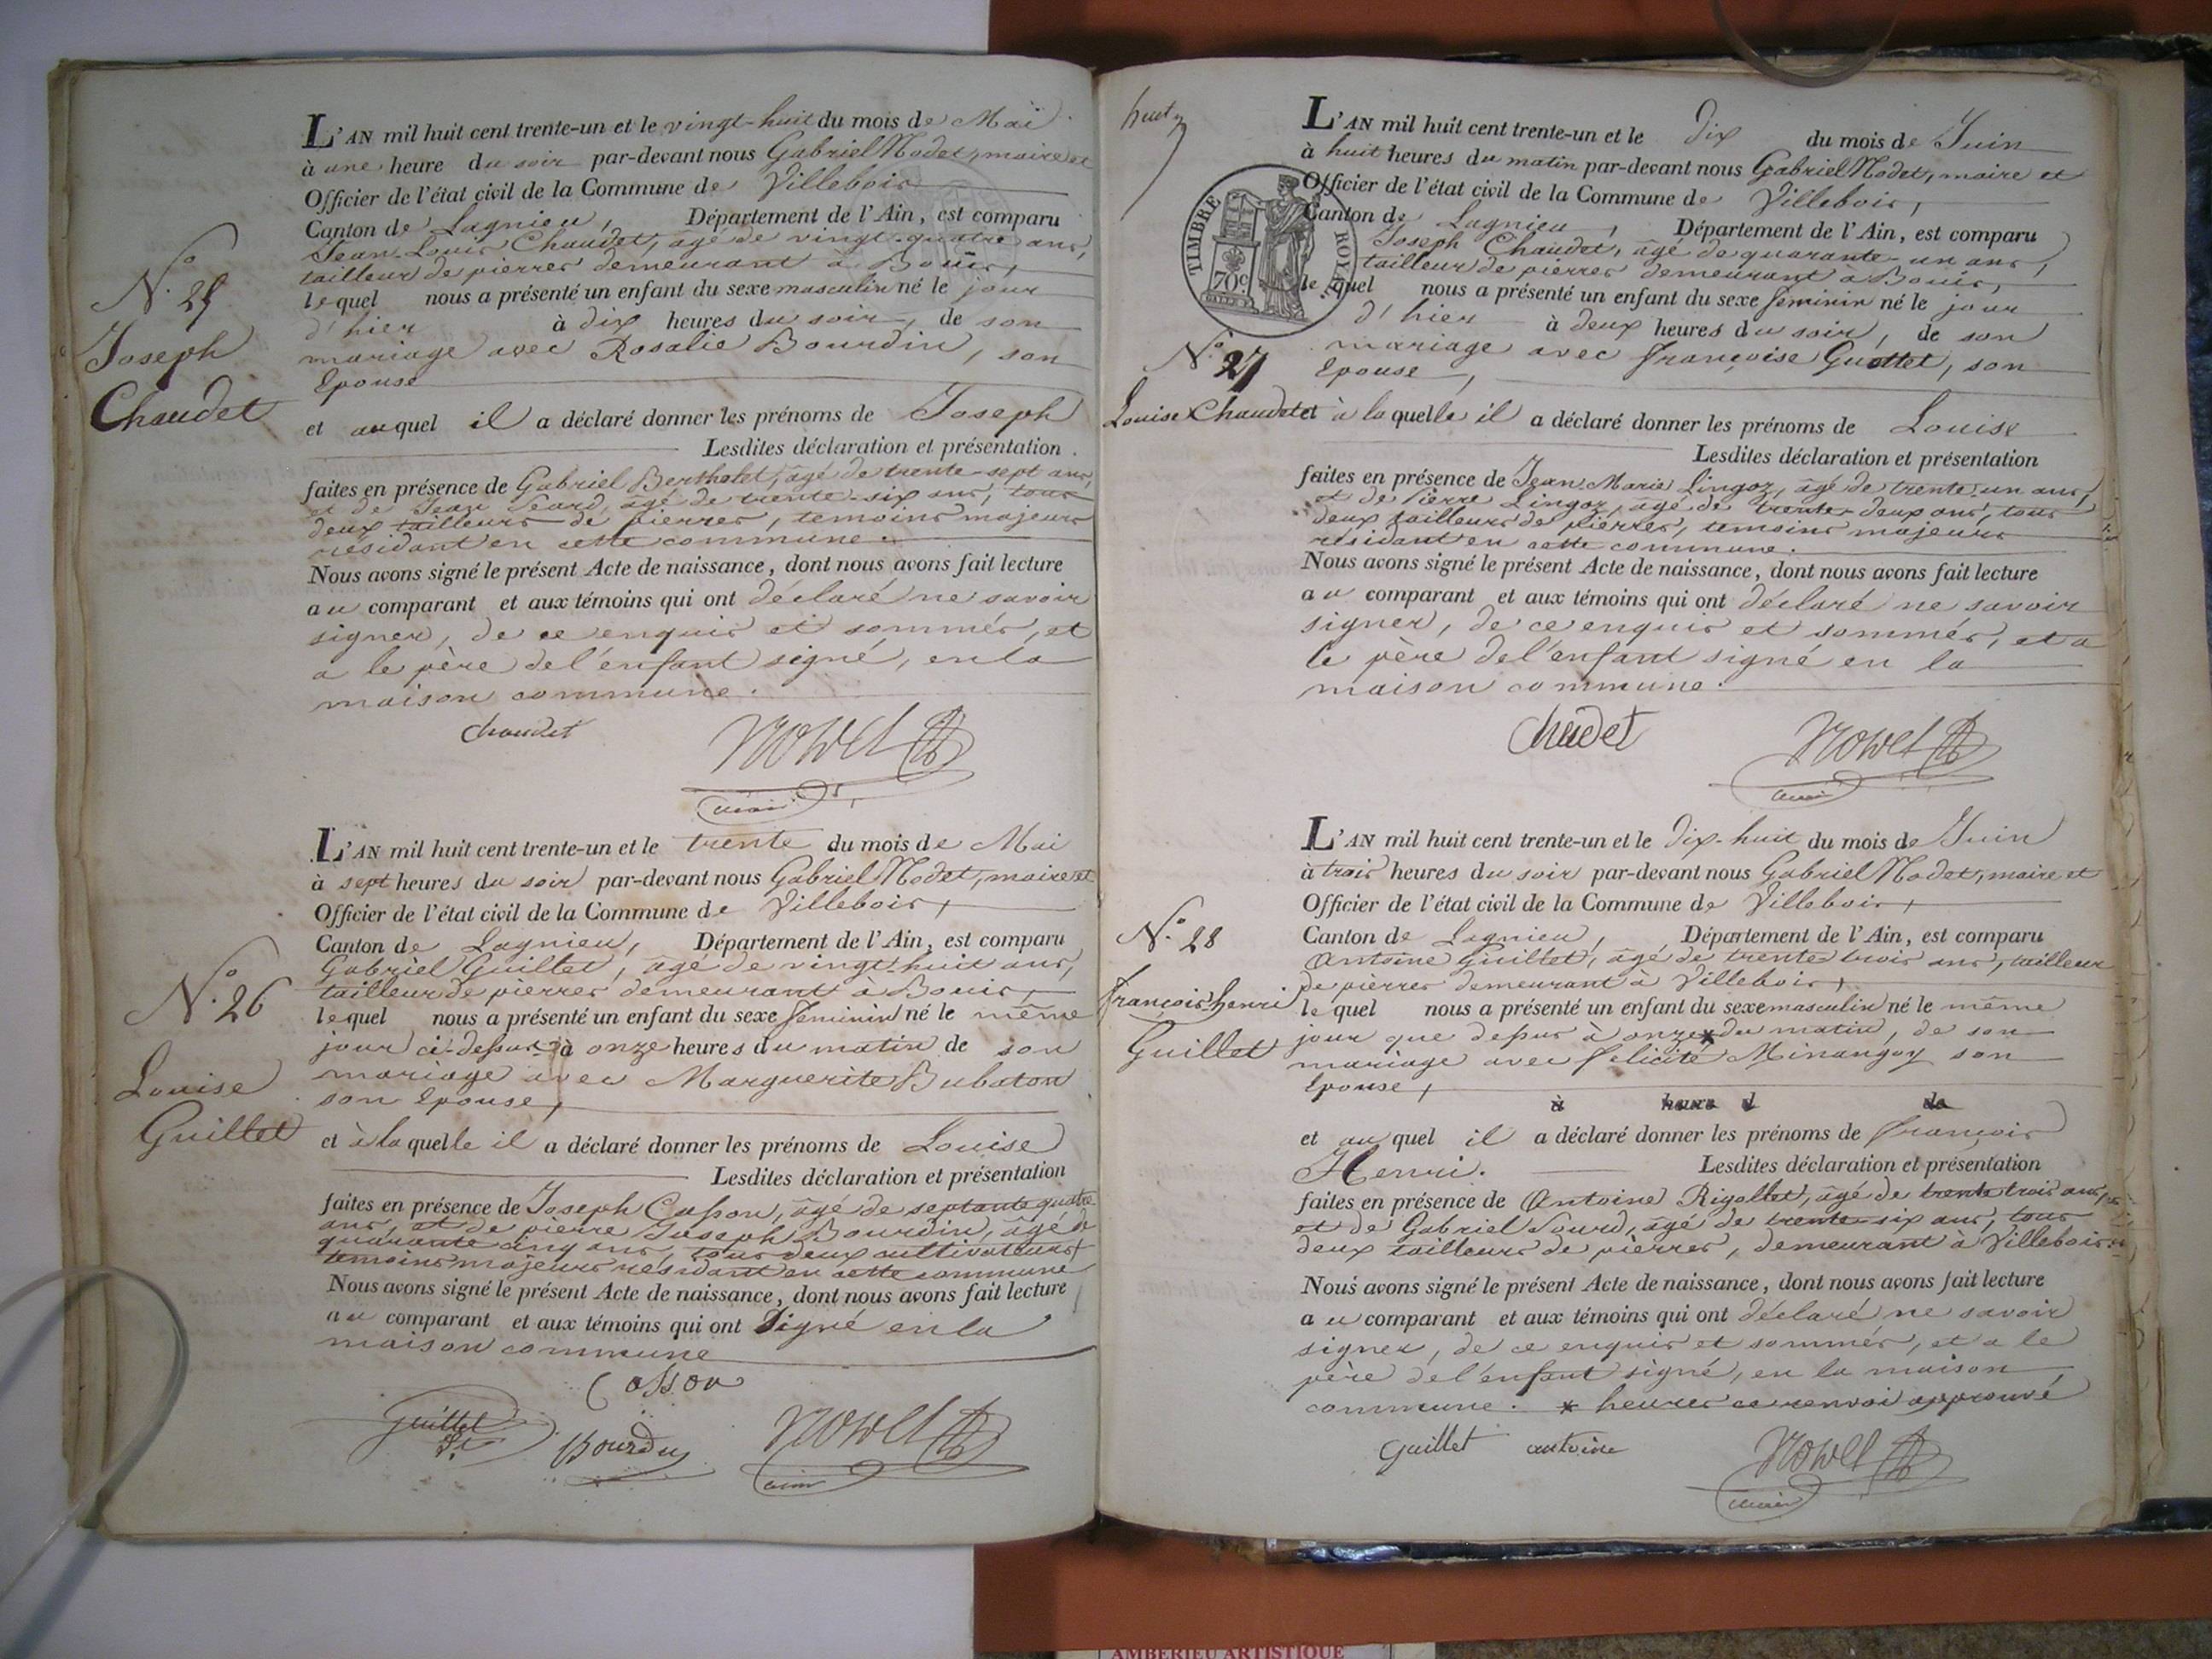 L'AN mil huit cent trente-un et le vingt-huit du mois de Mai
à une heure du soir par-devant nous Gabriel Nodet, maire et
Officier de l'état civil de la Commune de Villebois
Canton de Lagnieu, Département de l'Ain, est comparu
Jean-Louis Chaudet, âgé de vingt-quatre ans,
tailleur de pierres demeurant à Bouis,
lequel nous a présenté un enfant du sexe masculin né le jour
d'hier à dix heures du soir, de son
mariage avec Rosalie Bourdin, son
Epouse
N.o 25
Joseph
Chaudet
et auquel il a déclaré donner les prénoms de Joseph
Lesdites déclaration et présentation
faites en présence de Gabriel Berthelet, âgé de trente-sept ans,
et de Jean age de trente-six ans, tous
deux tailleurs de pierres, temoins majeurs
résidant en cette commune.
Nous avons signé le présent Acte de naissance, dont nous avons fait lecture
au comparant et aux témoins qui ont déclaré ne savoir
signer, de ce enquis et sommés, et
a le père de l'enfant signé, en la
maison commune.
Chaudet
L'AN mil huit cent trente-un et le trente du mois de Mai
à sept heures du soir par-devant nous Gabriel Nodet, maire et
Officier de l'état civil de la Commune de Villebois,
Canton de Lagnieu, Département de l'Ain, est comparu
Gabriel Guillet, âgé de vingt-huit ans,
tailleur de pierres demeurant à Bouis,
lequel nous a présenté un enfant du sexe féminin né le même
jour ci-dessus à onze heures du matin de son
mariage avec Marguerite Bubaton
son Epouse,
N.o 26
Louise
Guillet
et à laquelle il a déclaré donner les prénoms de Louise
Lesdites déclaration et présentation
faites en présence de Joseph Casson, âgé de septante quatre
ans, et de pierre Joseph Bourdin, âgé de
quarante cinq ans, tous deux cultivateurs,
temoins majeurs résidant en cette commune
Nous avons signé le présent Acte de naissance, dont nous avons fait lecture
au comparant et aux témoins qui ont Signé en la
maison commune
Casson
Guillet
Bourdin
huit
L'AN mil huit cent trente-un et le dix du mois de Juin
à huit heures du matin par-devant nous Gabriel Nodet, maire et
Officier de l'état civil de la Commune de Villebois,
Canton de Lagnieu, Département de l'Ain, est comparu
Joseph Chaudet, âgé de quarante-un ans,
tailleur de pierres demeurant à Bouis,
lequel nous a présenté un enfant du sexe féminin né le jour
d'hier à deux heures du soir, de son
mariage avec françoise Guottet, son
Epouse,
TIMBRE ROYAL
70c
N.o 27
Louise Chaudet
et à laquelle il a déclaré donner les prénoms de Louise
Lesdites déclaration et présentation
faites en présence de Jean-Marie Lingoz, âgé de trente-un ans,
et de Pierre Lingoz, âgé de trente-deux ans, tous
deux tailleurs de pierres, temoins majeurs
résidant en cette commune.
Nous avons signé le présent Acte de naissance, dont nous avons fait lecture
au comparant et aux témoins qui ont déclaré ne savoir
signer, de ce enquis et sommés, et a
le père de l'enfant signé en la
maison commune.
Chaudet
L'AN mil huit cent trente-un et le dix-huit du mois de Juin
à trois heures du soir par-devant nous Gabriel Nodet, maire et
Officier de l'état civil de la Commune de Villebois,
Canton de Lagnieu, Département de l'Ain, est comparu
Antoine Guillet, âgé de trente trois ans, tailleur
de pierres demeurant à Villebois,
lequel nous a présenté un enfant du sexe masculin né le même
jour que dessus à onze * du matin, de son
mariage avec félicité Minangoy son
Epouse,
à heure d de
N.o 28
françois henri
Guillet
et auquel il a déclaré donner les prénoms de françois
Henri. Lesdites déclaration et présentation
faites en présence de Antoine Rigollet, âgé de trente trois ans,
et de Gabriel Sourd, âgé de trente-six ans, tous
deux tailleurs de pierres, demeurant à Villebois
Nous avons signé le présent Acte de naissance, dont nous avons fait lecture
au comparant et aux témoins qui ont déclaré ne savoir
signer, de ce enquis et sommés, et a le
père de l'enfant signé, en la maison
commune. * heures ce renvoi approuvé
Guillet antoine
AMBERIEU ARTISTIQUE